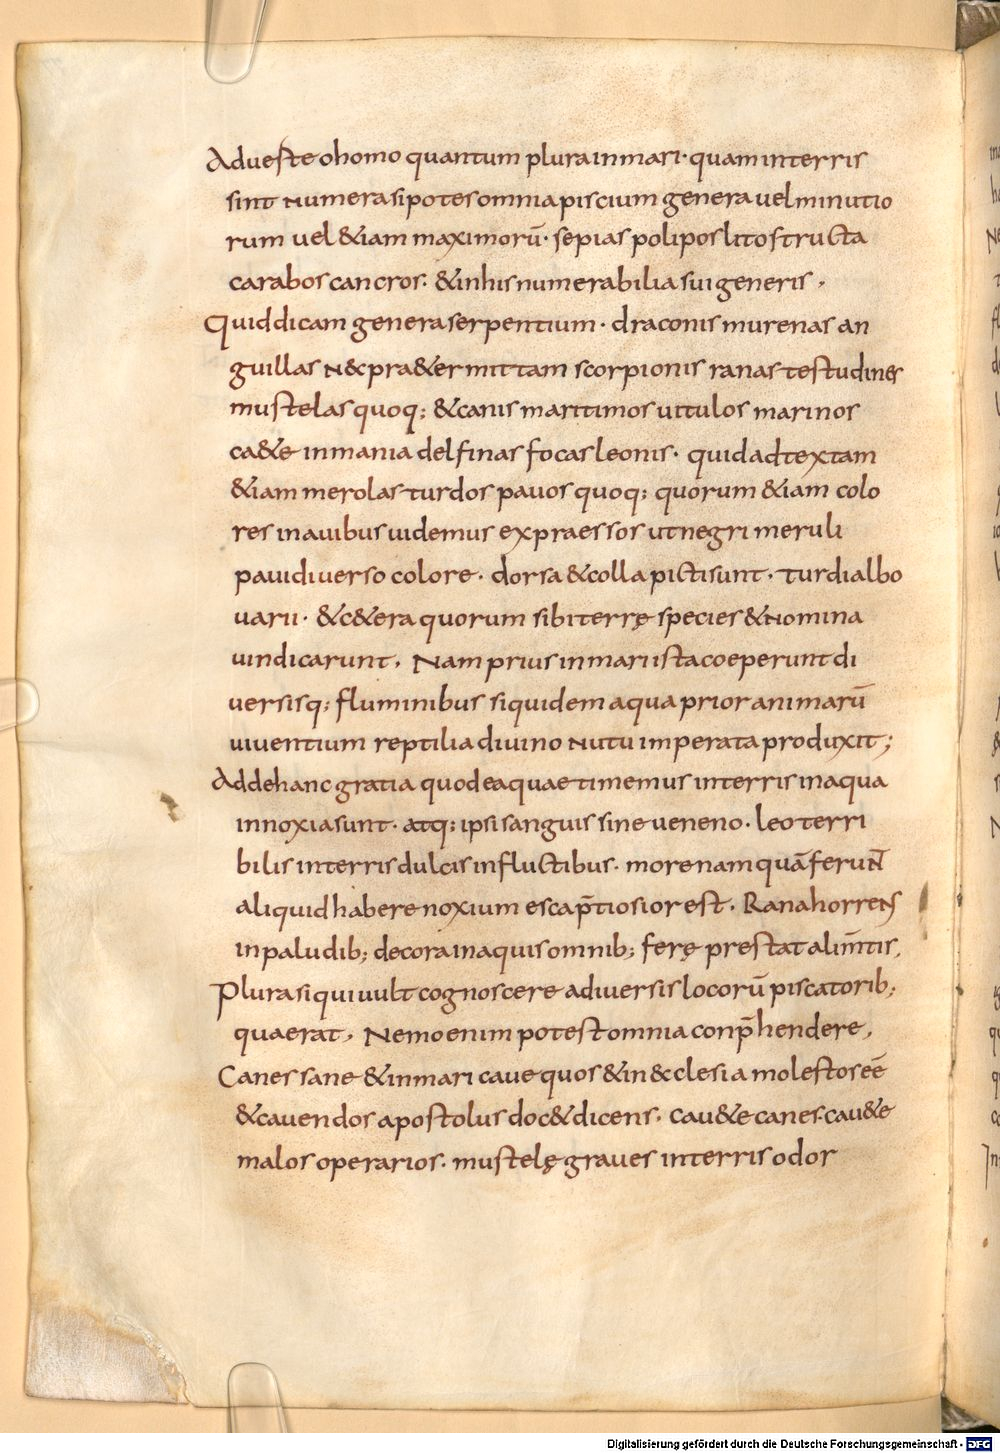 Adueste ohomo quantum plurainmari· quam interris
sint numerasipotesomniapiscium genera uel minutio
rum uel &iam maximorū· sepias polipos litostructa
carabos cancros· &inhisnumerabilia suigeneris ·
Quid dicam generaserpentium · draconis murenas an
guillas n&cpra&ermittam scorpionis ranas testudines
mustelas quoq; &canis maritimos uitulos marinos
ca&e inmania delfinas focas leonis · quid adtextam
&iam merolas turdos pauos quoq; quorum &iam colo
res inauibus uidemus expraessos utnegri meruli
pauidiuerso colore · dorsa &colla pictisunt · turdialbo
uarii · &c&era quorum sibi terrę species &nomina
uindicarunt, Nam prius inmari istacoeperunt di
uersisq; fluminibus siquidem aqua prior animarū
uiuentium reptilia diuino nutu imperata produxit;
Addehanc gratia quodeaquae timemus interris inaqua
innoxiasunt· atq; ipsi sanguis sine ueneno· leo terri
bilis interris dulcis influctibus· morenam quā ferunt
aliquid habere noxium escap̄tiosior est · Rana horrens
inpaludib; decora inaquis omnib; ferę prestat alim̄tis,
Plurasi qui uult cognoscere adiuersis locorū piscatorib;
quaerat, Nemo enim potest omnia conp̄hendere,
Canes sane &inmari caue quos &in&clesia molestos eē
&cauendos apostolus doc& dicens · cau&e canes· cau&e
malos operarios· mustelę graues interris odor
Digitalisierung gefördert durch die Deutsche Forschungsgemeinschaft - DFG